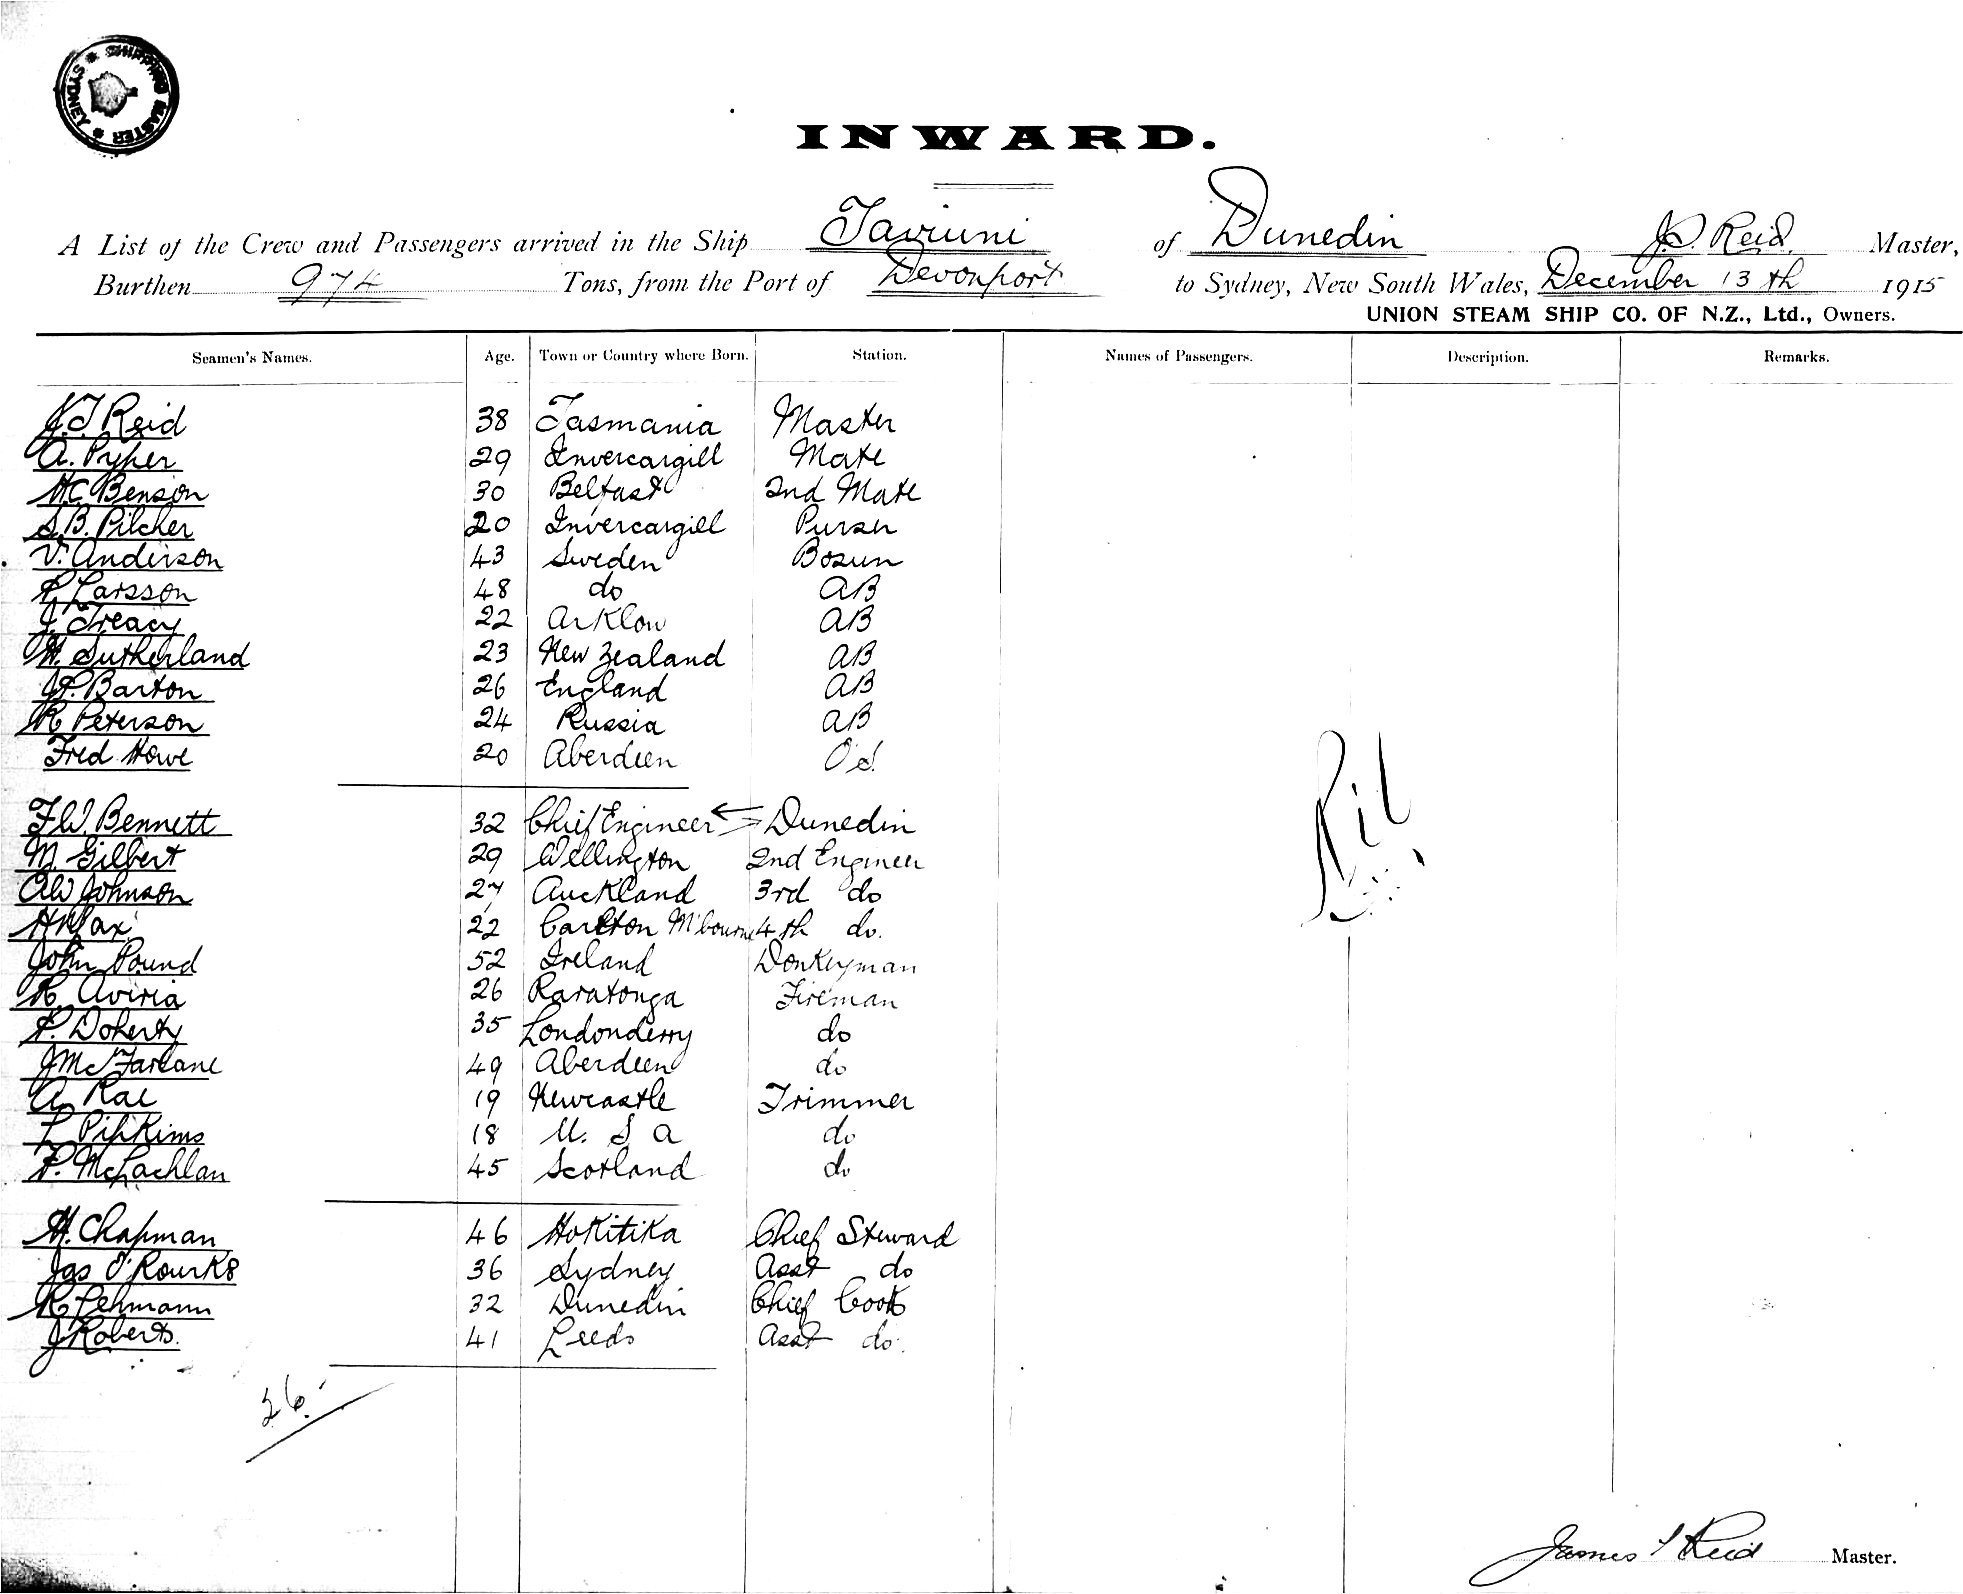 SHIPPING MASTER * SYDNEY *
INWARD.
A List of the Crew and Passengers arrived in the Ship Taviuni of Dunedin J. Reid. Master,
Burthen 974 Tons, from the Port of Devonport to Sydney, New South Wales, December 13th 1915
UNION STEAM SHIP CO. OF N.Z., Ltd., Owners.
Seamen's Names. Age. Town or Country where Born. Station. Names of Passengers. Description. Remarks.
J.T. Reid 38 Tasmania Master
A. Pyper 29 Invercargill Mate
H.C. Benson 30 Belfast 2nd Mate
S.B. Pilcher 20 Invercargill Purser
V. Anderson 43 Sweden Bosun
P. Larsson 48 do AB
J. Treacy 22 Arklow AB
W. Sutherland 23 New Zealand AB
J.P. Barton 26 England AB
R Peterson 24 Russia AB
Fred Howe 20 Aberdeen O.S.
F.W. Bennett 32 Chief Engineer Dunedin
M. Gilbert 29 Wellington 2nd Engineer
AW Johnson 27 Auckland 3rd do
Wax 22 Carlton M'bourne 4th do.
John Pound 52 Ireland Donkeyman
R Aviria 26 Raratonga Fireman
P. Doherty 35 Londonderry do
J McFarlane 49 Aberdeen do
A Rae 19 Newcastle Trimmer
L Pipkims 18 U. S A do
P. McLachlan 45 Scotland do
H. Chapman 46 Hokitika Chief Steward
Jas O'Rourke 36 Sydney Asst do
R Lehmann 32 Dunedin Chief Cook
J Roberts. 41 Leeds Asst do.
26.
James T Reid Master.